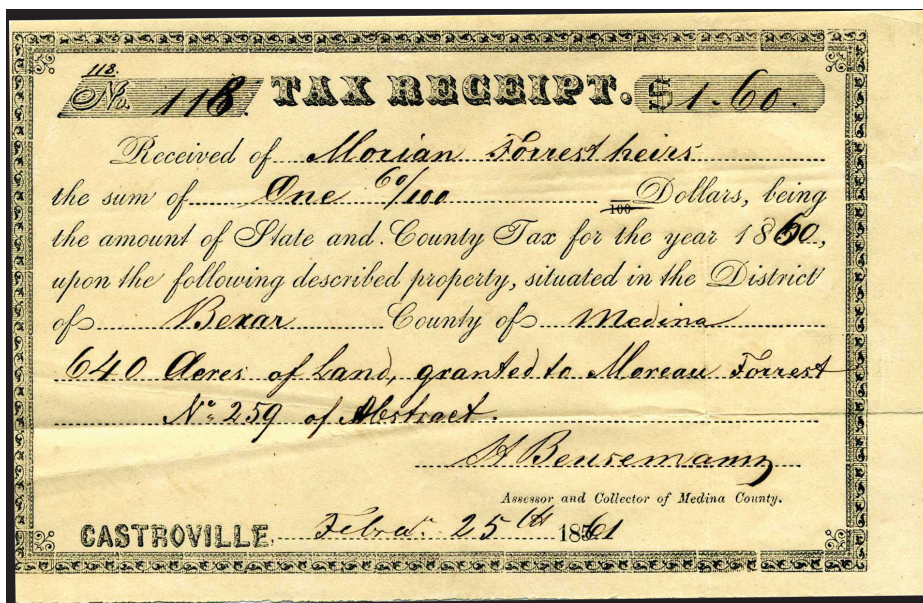 118.
No. 118. TAX RECEIPT. $ 1.60.
Received of Morian Forrest heirs
the sum of One 60/100 /100 Dollars, being
the amount of State and County Tax for the year 1860,
upon the following described property, situated in the District
of Bexar County of Medina
640 Acres of Land, granted to Moreau Forrest
No. 259 of Abstract.
H Beusemann
Assessor and Collector of Medina County.
CASTROVILLE, Febra. 25th 1861